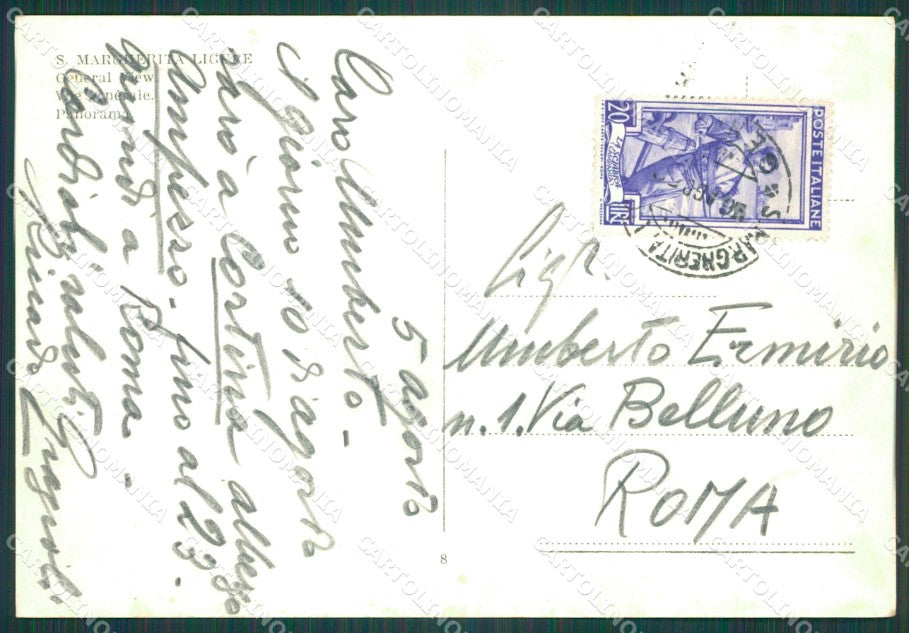 S. MARGHERITA LIGURE
General View
Vue générale.
Panorama
5 agosto
Caro Umberto -
il giorno 10 d'agosto
sarò a Cortina albergo
Ampezzo - fino al 23 -
quindi a Roma -
Cordiali saluti
Sigr.
Umberto Ermirio
n. 1. Via Belluno
ROMA
POSTE ITALIANE
20
LIRE
S. MARGHERITA
8
CARTOLINOMANIA